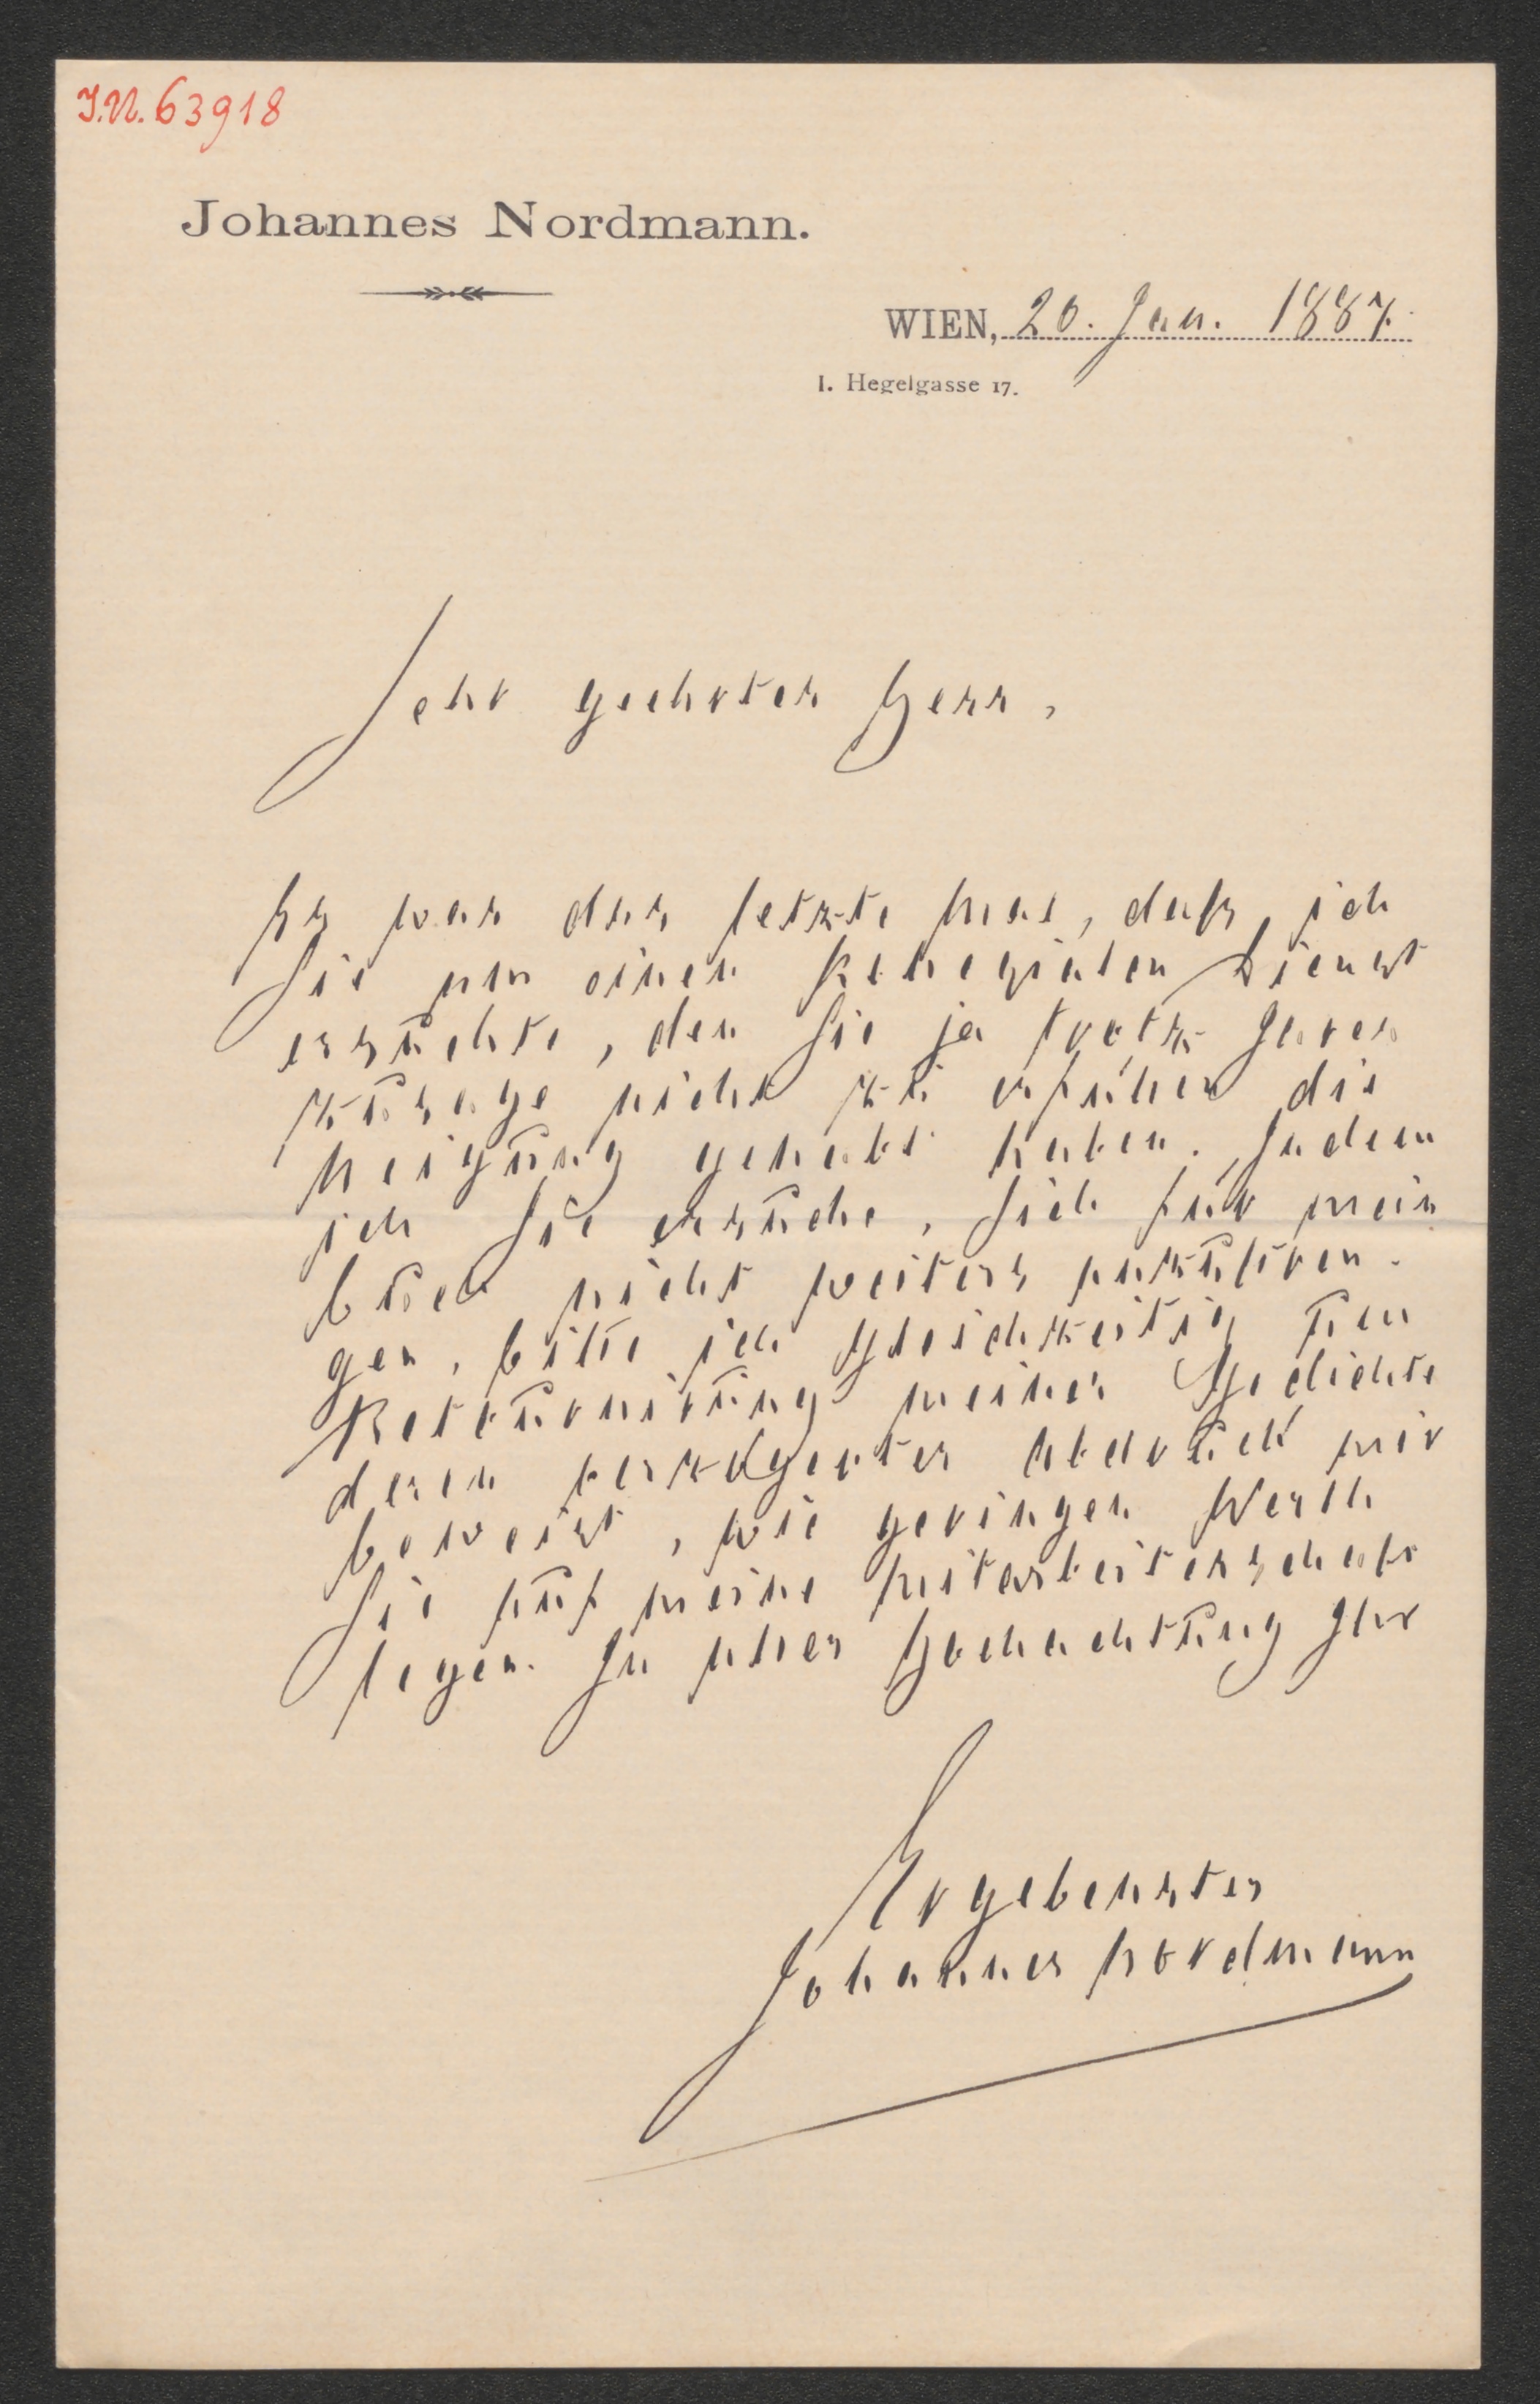 I.N. 63918
Johannes Nordmann.
WIEN, 20. Jan. 1887.
I. Hegelgasse 17.
Sehr geehrter Herr,
Es war das letzte Mal, daß ich
Sie um einen kollegialen Dienst
ersuchte, den Sie ja trotz Ihrer
Zusage nicht zu erfüllen die
Neigung gehabt haben. Indem
ich Sie ersuche, Sich für mein
Buch nicht weiters
gen, bitte ich gleichzeitig um
Retournirung meiner Gedichte
deren verzögerter Abdruck mir
beweist, wie geringen Werth
Sie auf meine Mitarbeiterschaft
legen. In aller Hochachtung Ihr
Ergebenster
Johannes Nordmann